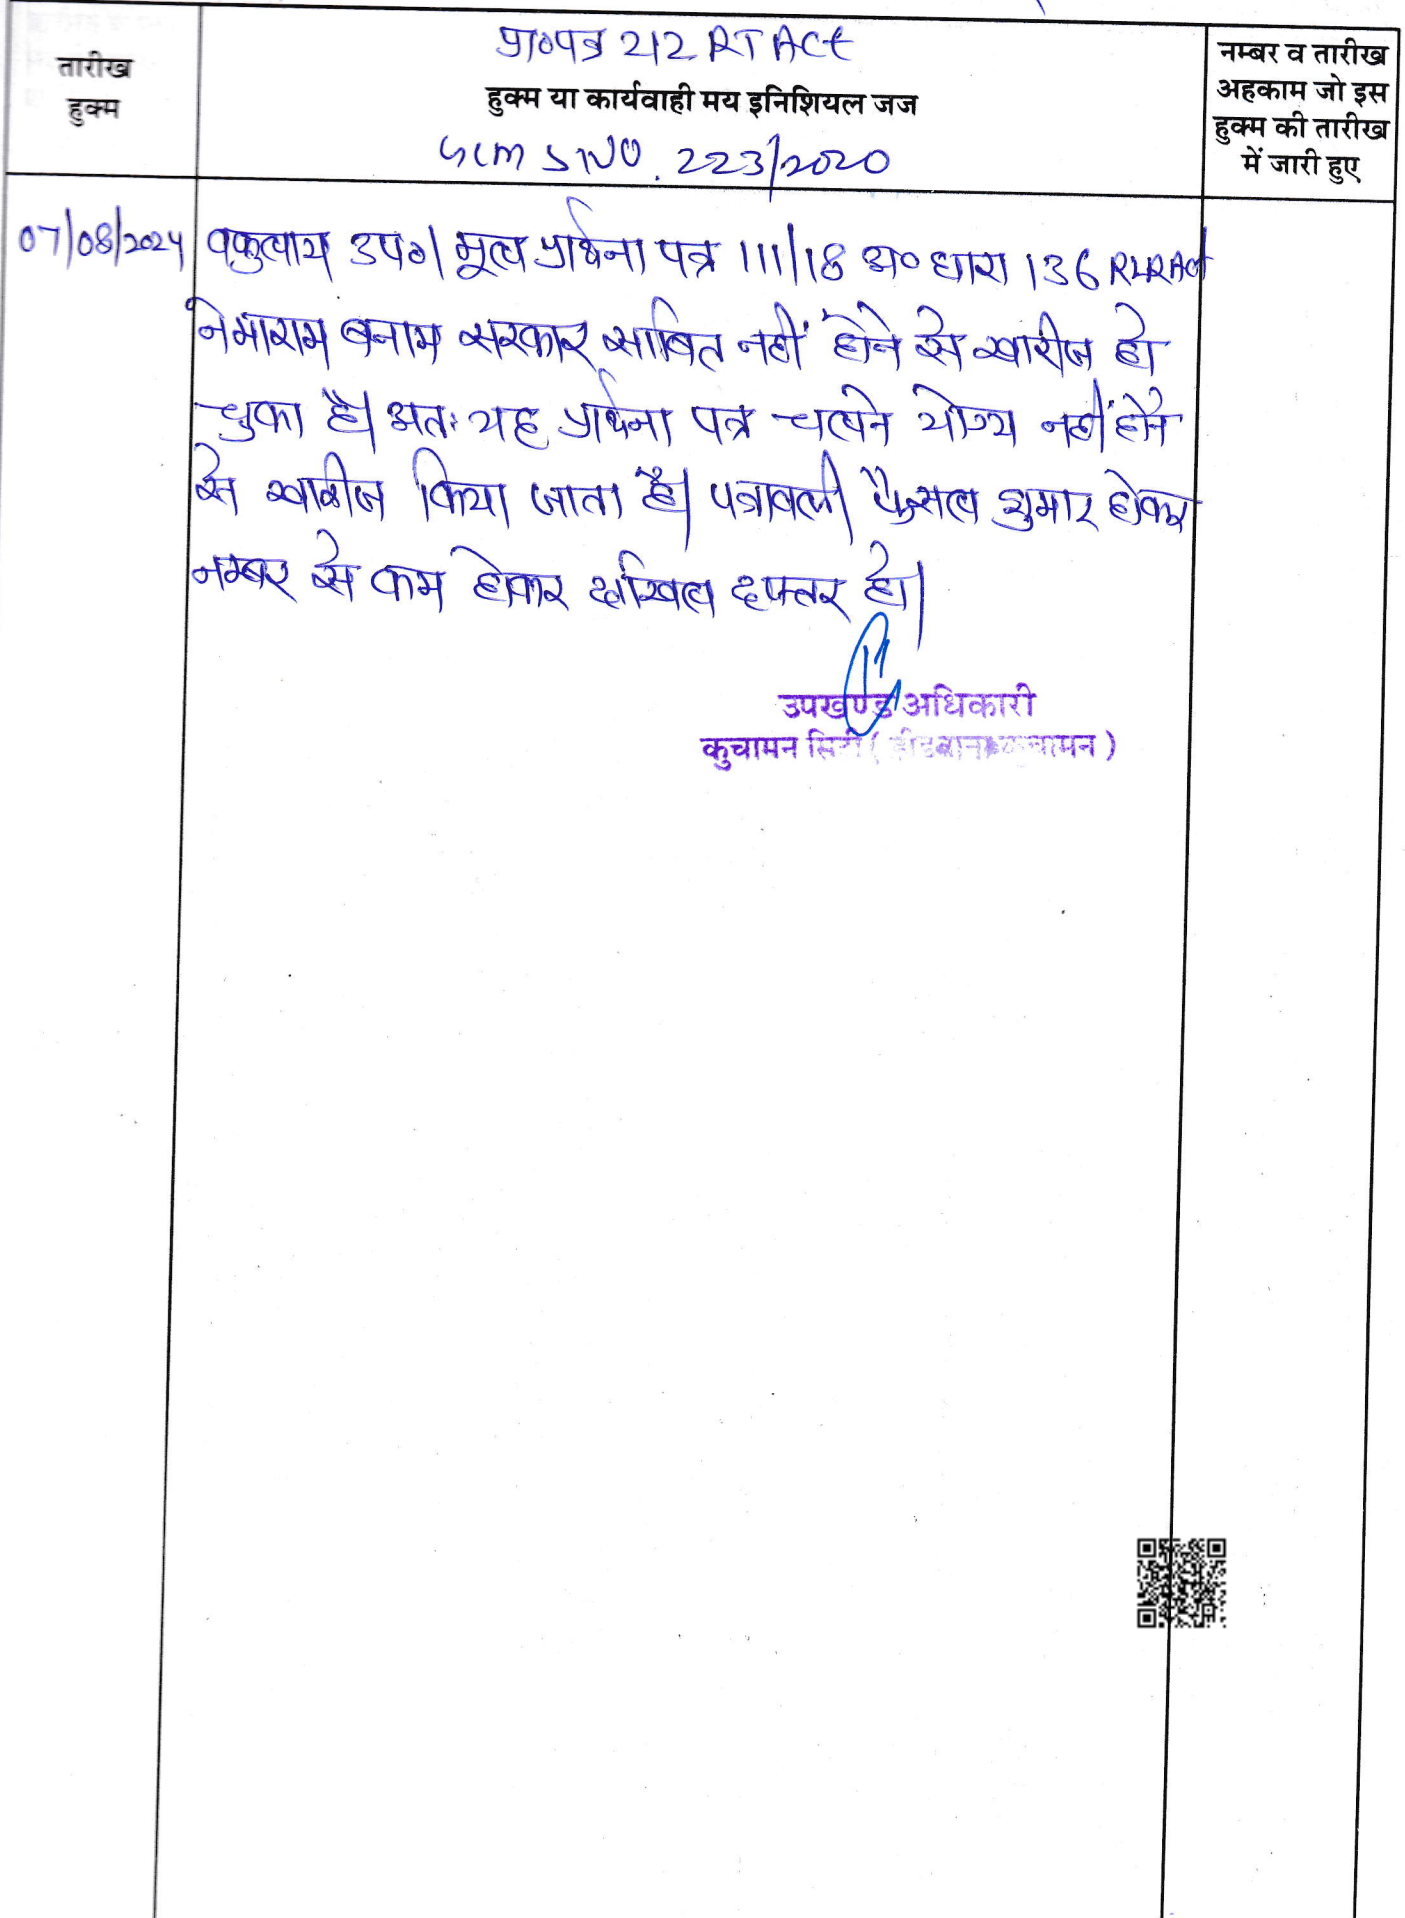 प्रा०पत्र 212 RT Act
तारीख
हुक्म
हुक्म या कार्यवाही मय इनिशियल जज
नम्बर व तारीख
अहकाम जो इस
हुक्म की तारीख
में जारी हुए
GCMS NO. 223/2020
07/08/2024 वकुलाय उप०। मूल प्रार्थना पत्र 111/18 अ० धारा 136 RLRAct
नेमाराम बनाम सरकार साबित नहीं होने से खारीज हो
चुका है। अतः यह प्रार्थना पत्र चलने योग्य नहीं होने
से खारीज किया जाता है। पत्रावली फैसल शुमार होकर
नम्बर से कम होकर दाखिल दफ्तर हो।
उपखण्ड अधिकारी
कुचामन सिटी (डीडवाना-कुचामन)